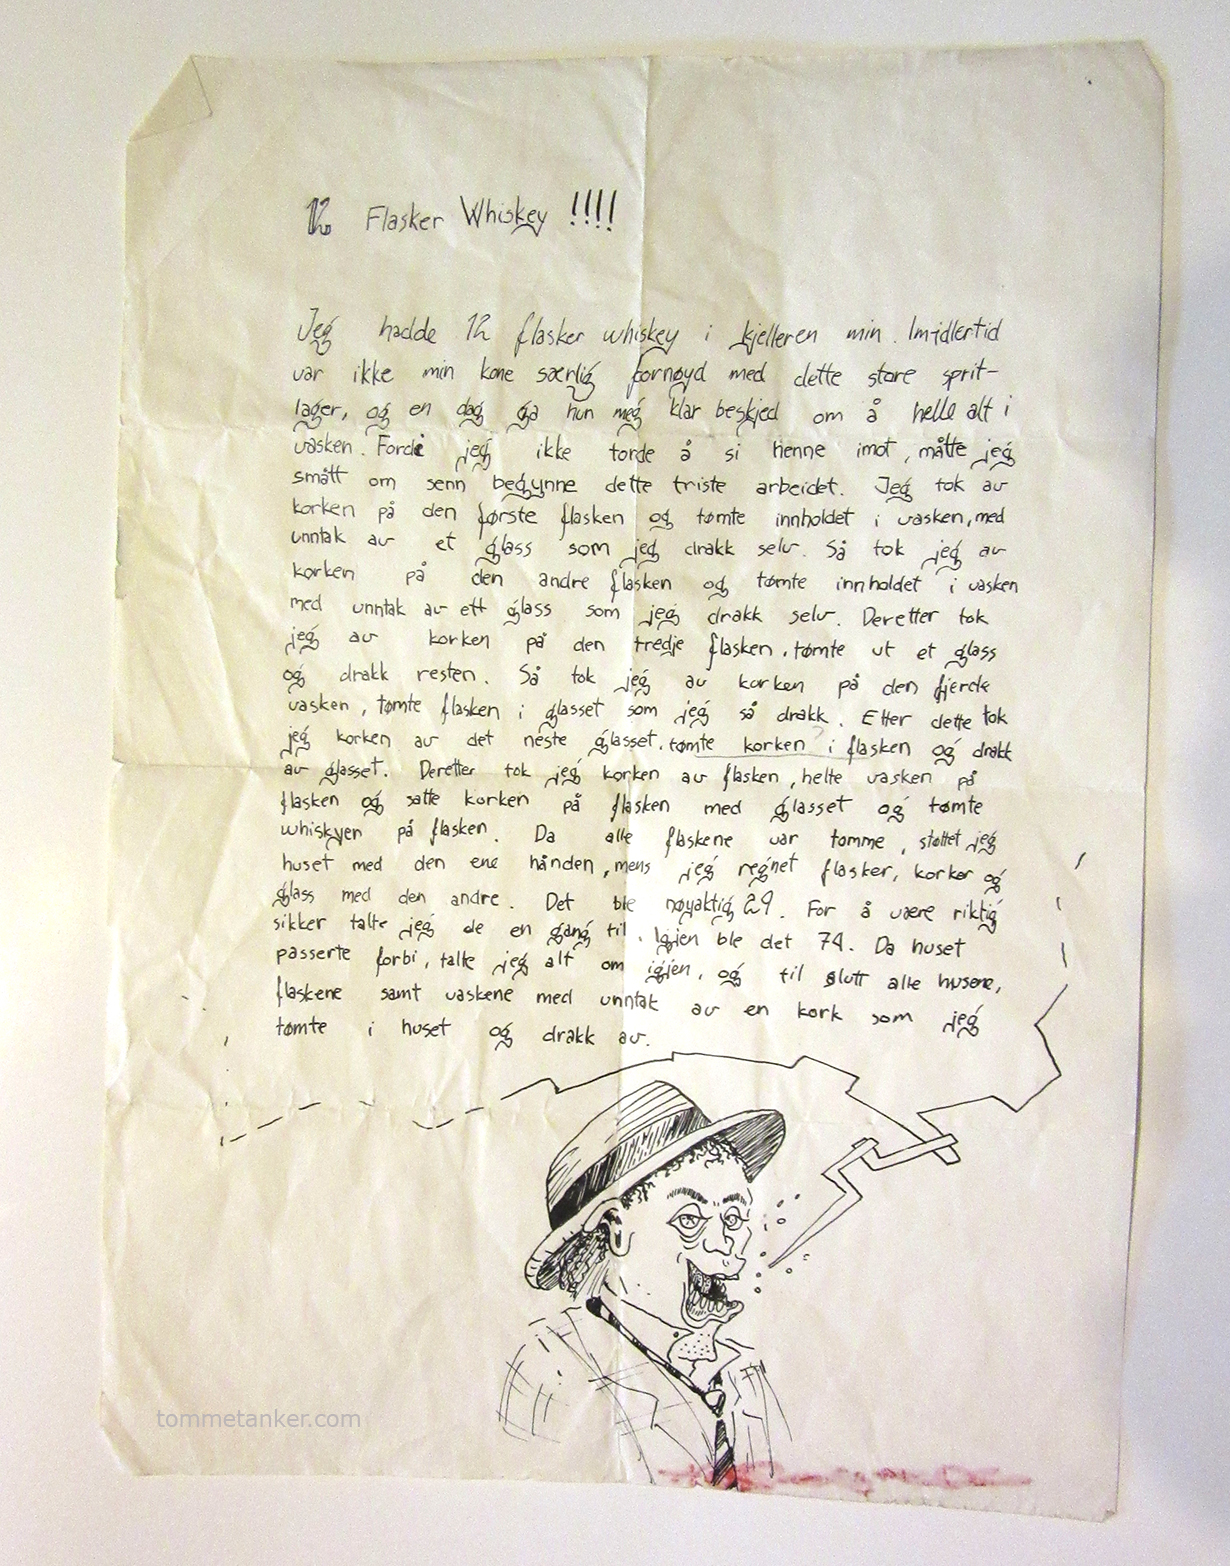 12 Flasker Whiskey !!!!
Jeg hadde 12 flasker whiskey i kjelleren min. Imidlertid
var ikke min kone særlig fornøyd med dette store sprit-
lager, og en dag ga hun meg klar beskjed om å helle alt i
vasken. Fordi jeg ikke torde å si henne imot, måtte jeg
smått om senn begynne dette triste arbeidet. Jeg tok av
korken på den første flasken og tømte innholdet i vasken, med
unntak av et glass som jeg drakk selv. Så tok jeg av
korken på den andre flasken og tømte innholdet i vasken
med unntak av ett glass som jeg drakk selv. Deretter tok
jeg av korken på den tredje flasken, tømte ut et glass
og drakk resten. Så tok jeg av korken på den fjerde
vasken, tømte flasken i glasset som jeg så drakk. Etter dette tok
jeg korken av det neste glasset, tømte korken i flasken og drakk
av glasset. Deretter tok jeg korken av flasken, helte vasken på
flasken og satte korken på flasken med glasset og tømte
whiskyen på flasken. Da alle flaskene var tomme, støttet jeg
huset med den ene hånden, mens jeg regnet flasker, korker og
glass med den andre. Det ble nøyaktig 29. For å være riktig
sikker talte jeg de en gang til. Igjen ble det 74. Da huset
passerte forbi, talte jeg alt om igjen, og til slutt alle husene,
flaskene samt vaskene med unntak av en kork som jeg
tømte i huset og drakk av.
tommetanker.com